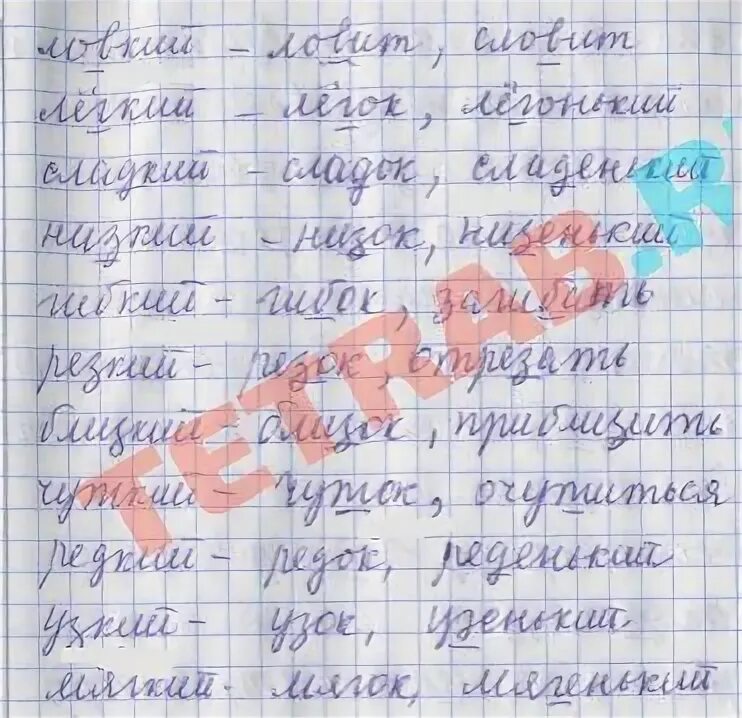 ловкий – ловит, словит
лёгкий – лёгок, лёгонький
сладкий – сладок, сладенький
низкий – низок, низенький
гибкий – гибок, загибить
резкий – резок, отрезать
близкий – близок, приблизить
чуткий – чуток, очутиться
редкий – редок, реденький
узкий – узок, узенький
мягкий – мягок, мягенький
TETRAB.R